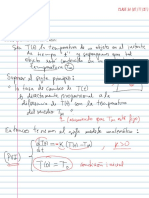 CLASE 23 SEPTIEMBRE
Sea T(t) la temperatura de un objeto en el instante
de tiempo "t" y supongamos que tal
objeto está contenido en un medio
temperatura Tm
Supongamos el siguiente principio:
la tasa de cambio de T(t)
es directamente proporcional a la
diferencia de T(t) con la temperatura
del medio Tm
(asumiendo que Tm está fijo)
Entonces tenemos el siguiente modelo matemático:
T'(t) = -k (T(t) - Tm) k > 0
(PVI)
T(0) = To condición inicial